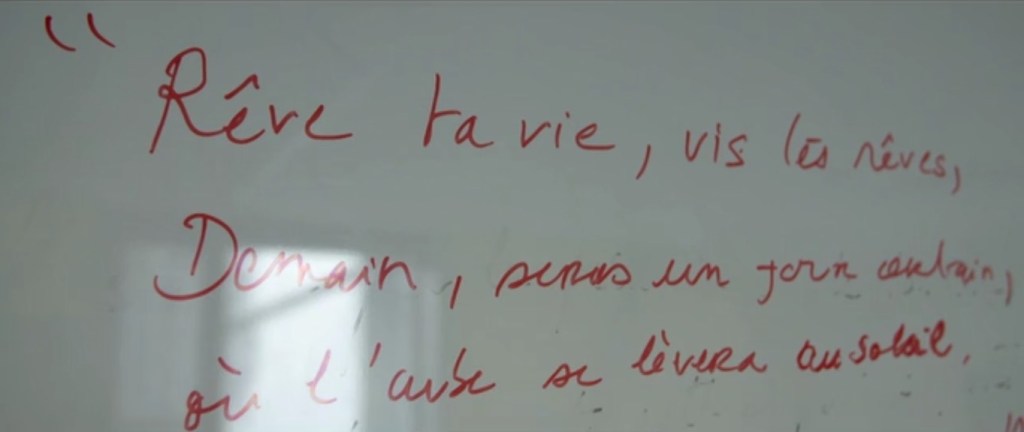 “ Rêve ta vie, vis tes rêves,
Demain, seras un jour
où l'aube se lèvera au soleil.